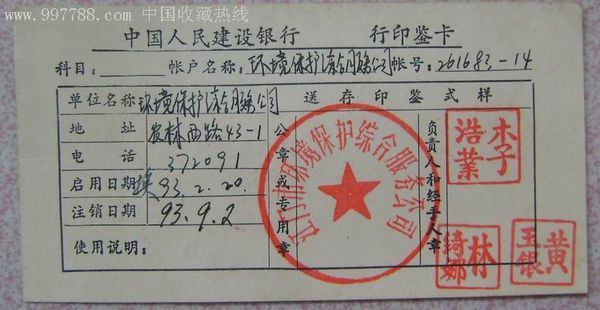 www.997788.com 中国收藏热线
中国人民建设银行 行印鉴卡
科目： 帐户名称：环境保护综合服务公司 帐号：261683-14
单位名称 环境保护综合服务公司 送存印鉴式样
地址 农林西路43-1
电话 372091
启用日期 93.2.20.
注销日期 93.9.2
使用说明：
公章或专用章
江门市环境保护综合服务公司
负责人和经手人章
李浩业
林绮娜
黄玉银